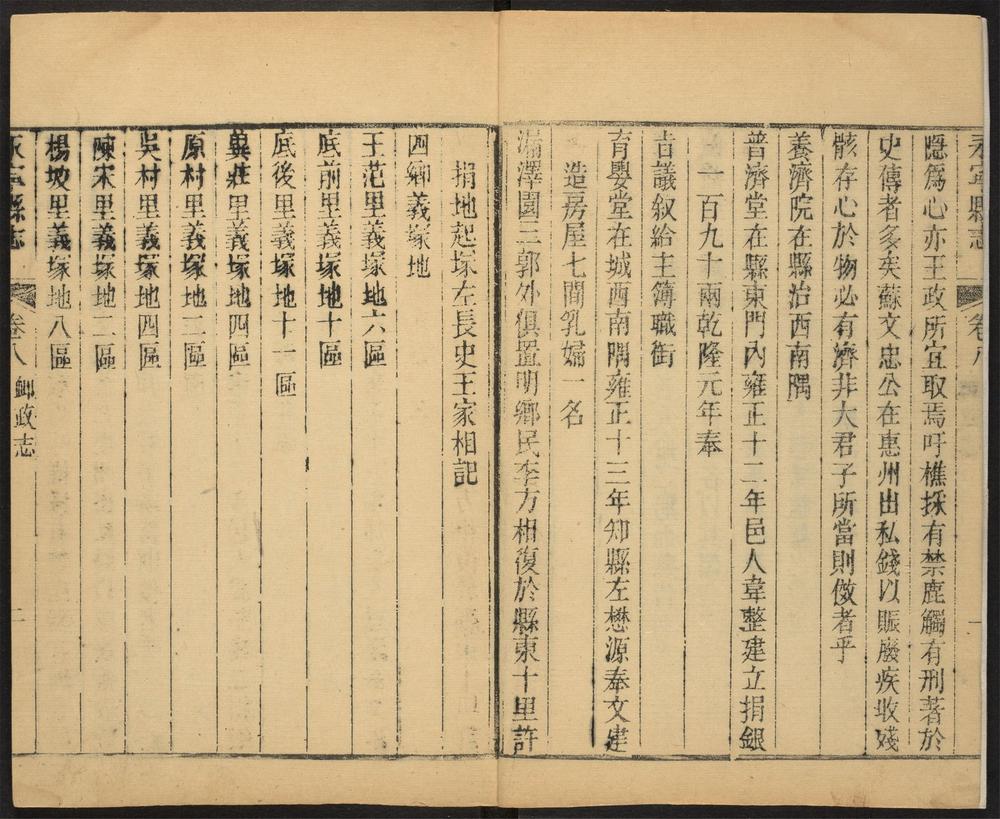 永寧縣志
卷八
一
隱爲心亦王政所宜取焉吁樵採有禁鹿觸有刑著於
史傳者多矣蘇文忠公在惠州出私錢以賑廢疾收殘
骸存心於物必有濟非大君子所當則傚者乎
養濟院在縣治西南隅
普濟堂在縣東門內雍正十二年邑人韋整建立捐銀
一百九十兩乾隆元年奉
旨議叙給主簿職銜
育嬰堂在城西南隅雍正十三年知縣左懋源奉文建
造房屋七間乳婦一名
漏澤園三郭外俱置明鄉民李方相復於縣東十里許
捐地起塚左長史王家相記
四鄉義塚地
王范里義塚地六區
底前里義塚地十區
底後里義塚地十一區
吳莊里義塚地四區
原村里義塚地二區
吳村里義塚地四區
陳宋里義塚地二區
楊坡里義塚地八區
永寧縣志
卷八
卹政志
二